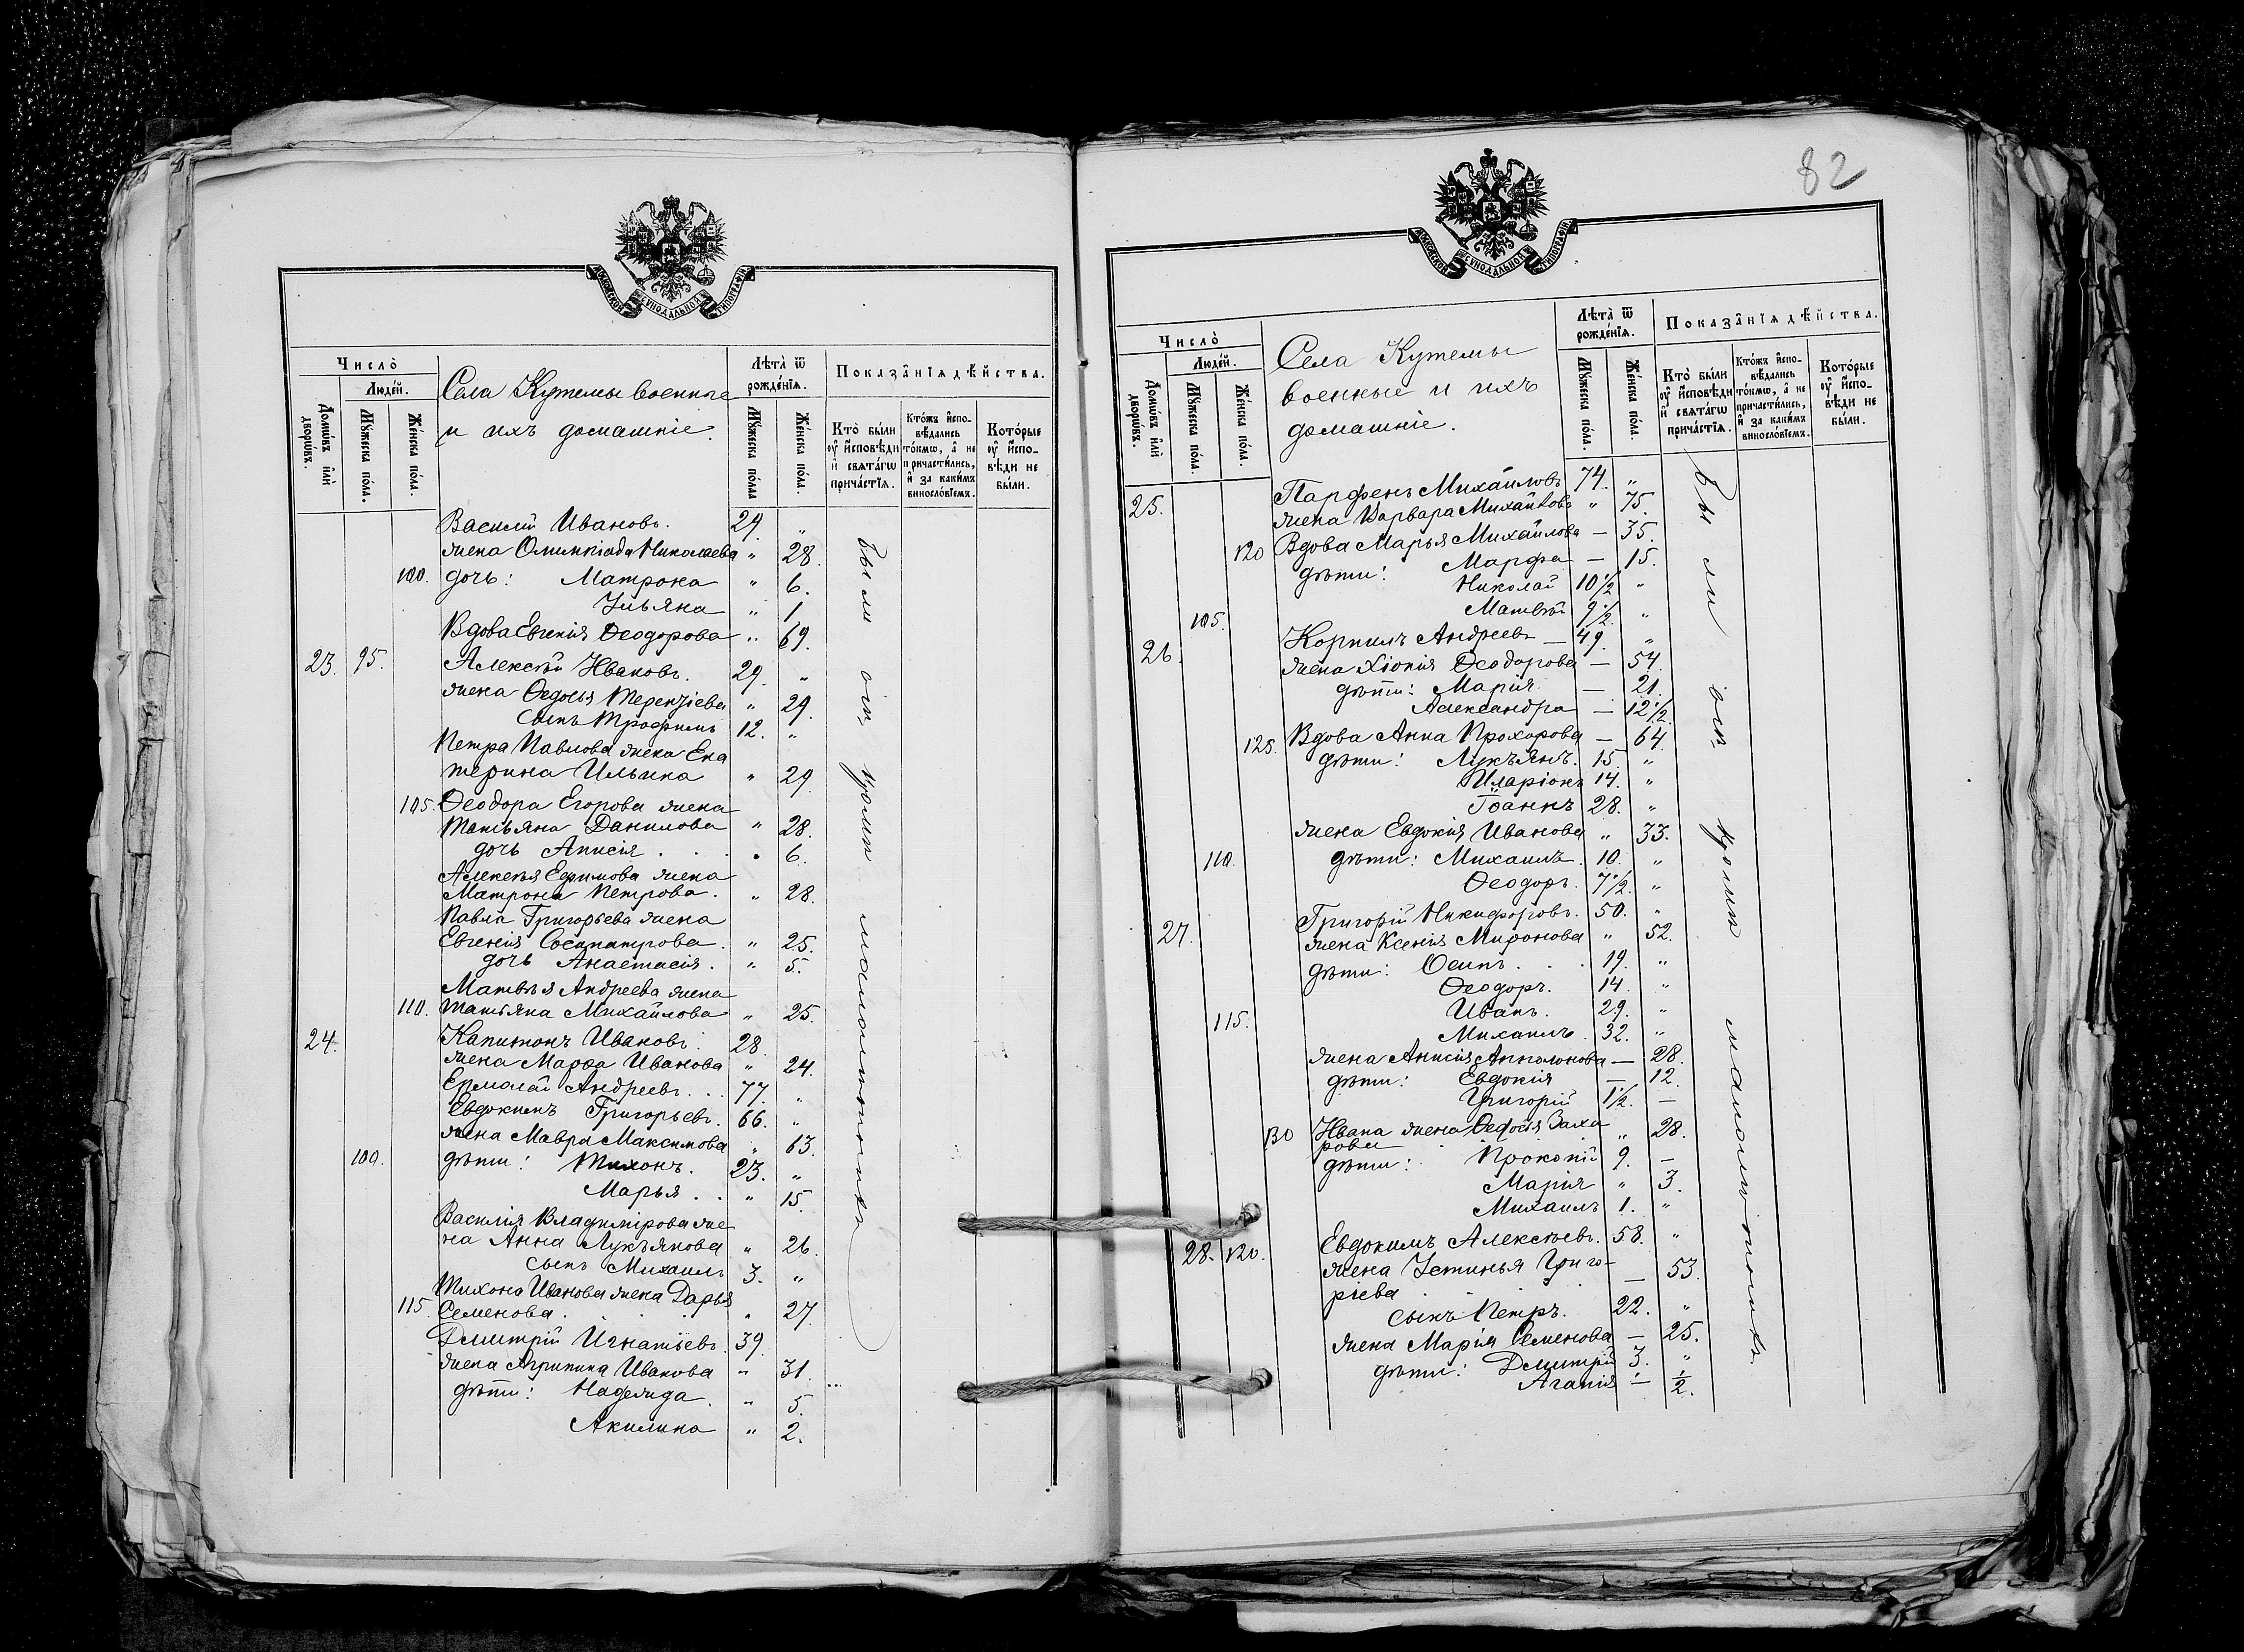 МОСКОВСКОЙ СУНОДАЛЬНОЙ ТИПОГРАФІИ
Число̀
Люде́й.
Домѡ́въ и҆лѝ дворѡ́въ.
Мꙋ́жеска по́ла.
Же́нска по́ла.
Села Кутемы военные
и ихъ домашніе.
Лѣта̀ ѿ рожде́нїѧ.
Мꙋ́жеска по́ла
Же́нска по́ла.
Показа̂нїѧ дѣ́йства.
Кто̀ бы́ли
оу҆ и҆сповѣ́ди
и҆ свѧта́гѡ
прича́стїѧ.
Кто́жъ и҆спо-
вѣ́дались
то́кмѡ, а҆ не
причасти́лись,
и҆ за каки́мъ
винослѻ́вїемъ.
Кото́рые
оу҆ и҆спо-
вѣ́ди не
бы́ли.
Василій Ивановъ. 29. „
жена Олимпіада Николаева „ 28.
100. дочь: Матрона „ 6.
Ульяна „ 1
Вдова Евгенія Ѳеодорова „ 69.
23. 95. Алексѣй Ивановъ. 29. „
жена Ѳедосья Терентіева „ 29.
сынъ Трофимъ 12. „
Петра Павлова жена Ека
терина Ильина „ 29.
105. Ѳеодора Егорова жена
Татьяна Данилова „ 28.
дочь Анисія . . . „ 6.
Алексѣя Ефимова жена
Матрона Петрова. „ 28.
Павла Григорьева жена
Евгенія Сосипатрова. „ 25.
дочь Анастасія. „ 5.
Матвѣя Андреева жена
110. Татьяна Михайлова „ 25.
24. Капитонъ Ивановъ. 28
жена Марѳа Иванова „ 24.
Ермолай Андреевъ. . . 77. „
Евдокимъ Григорьевъ. 66. „
жена Мавра Максимова „ 63.
100. дѣти: Тихонъ. 23. „
Марья . . „ 15.
Василія Владимірова же
на Анна Лукъянова „ 26.
сынъ Михаилъ 3. „
Тихона Иванова жена Дарья
115. Семенова. . . . „ 27.
Дмитрій Игнатьевъ. 39.
жена Агрипина Иванова „ 31.
дѣти: Надежда. „ 5.
Акилина „ 2.
Были всѣ кромѣ малолѣтнихъ
82
МОСКОВСКОЙ СУНОДАЛЬНОЙ ТИПОГРАФІИ
Число̀
Люде́й.
Домѡ́въ и҆лѝ дворѡ́въ.
Мꙋ́жеска по́ла.
Же́нска по́ла.
Села Кутемы
военные и ихъ
домашніе.
Лѣта̀ ѿ рожде́нїѧ.
Мꙋ́жеска по́ла.
Же́нска по́ла.
Показа̂нїѧ дѣ́йства.
Кто̀ бы́ли
оу҆ и҆сповѣ́ди
и҆ свѧта́гѡ
прича́стїѧ.
Кто́жъ и҆спо-
вѣ́дались
то́кмѡ, а҆ не
причасти́лись,
и҆ за каки́мъ
винослѻ́вїемъ.
Кото́рые
оу҆ и҆спо-
вѣ́ди не
бы́ли.
25. Парфенъ Михайловъ 74. „
жена Варвара Михайлова „ 75.
120 Вдова Марья Михайлова — 35.
дѣти: Марфа — 15.
Николай 10½ „
105. Матвѣй 9½. „
26. Корнилъ Андреевъ — 49. „
жена Хіонія Ѳеодорова — 54.
дѣти: Марія. — 21.
Александра — 12½.
125. Вдова Анна Прохорова — 64.
дѣти: Лукъянъ. 15. „
Иларіонъ 14. „
Іоаннъ 28. „
жена Евдокія Иванова „ 33.
110. дѣти: Михаилъ. 10. „
Ѳеодоръ. 7½. „
27. Григорій Никифоровъ. 50. „
жена Ксенія Миронова „ 52.
дѣти: Осипъ. . . 19. „
Ѳеодоръ. 14. „
115. Иванъ. 29. „
Михаилъ. 32. „
жена Анисія Апполонова — 28.
дѣти: Евдокія — 12.
Григорій 1½. —
130 Ивана жена Ѳедосія Заха
рова „ 28.
дѣти: Прокопій 9. —
Марія „ 3.
Михаилъ 1. „
28. 120. Евдокимъ Алексѣевъ. 58. „
жена Устинья Григо-
ріева — 53.
сынъ Петръ. 22. „
жена Марія Семенова — 25.
дѣти: Дмитрій 3. „
Агапія — ½.
Были всѣ кромѣ малолѣтнихъ.